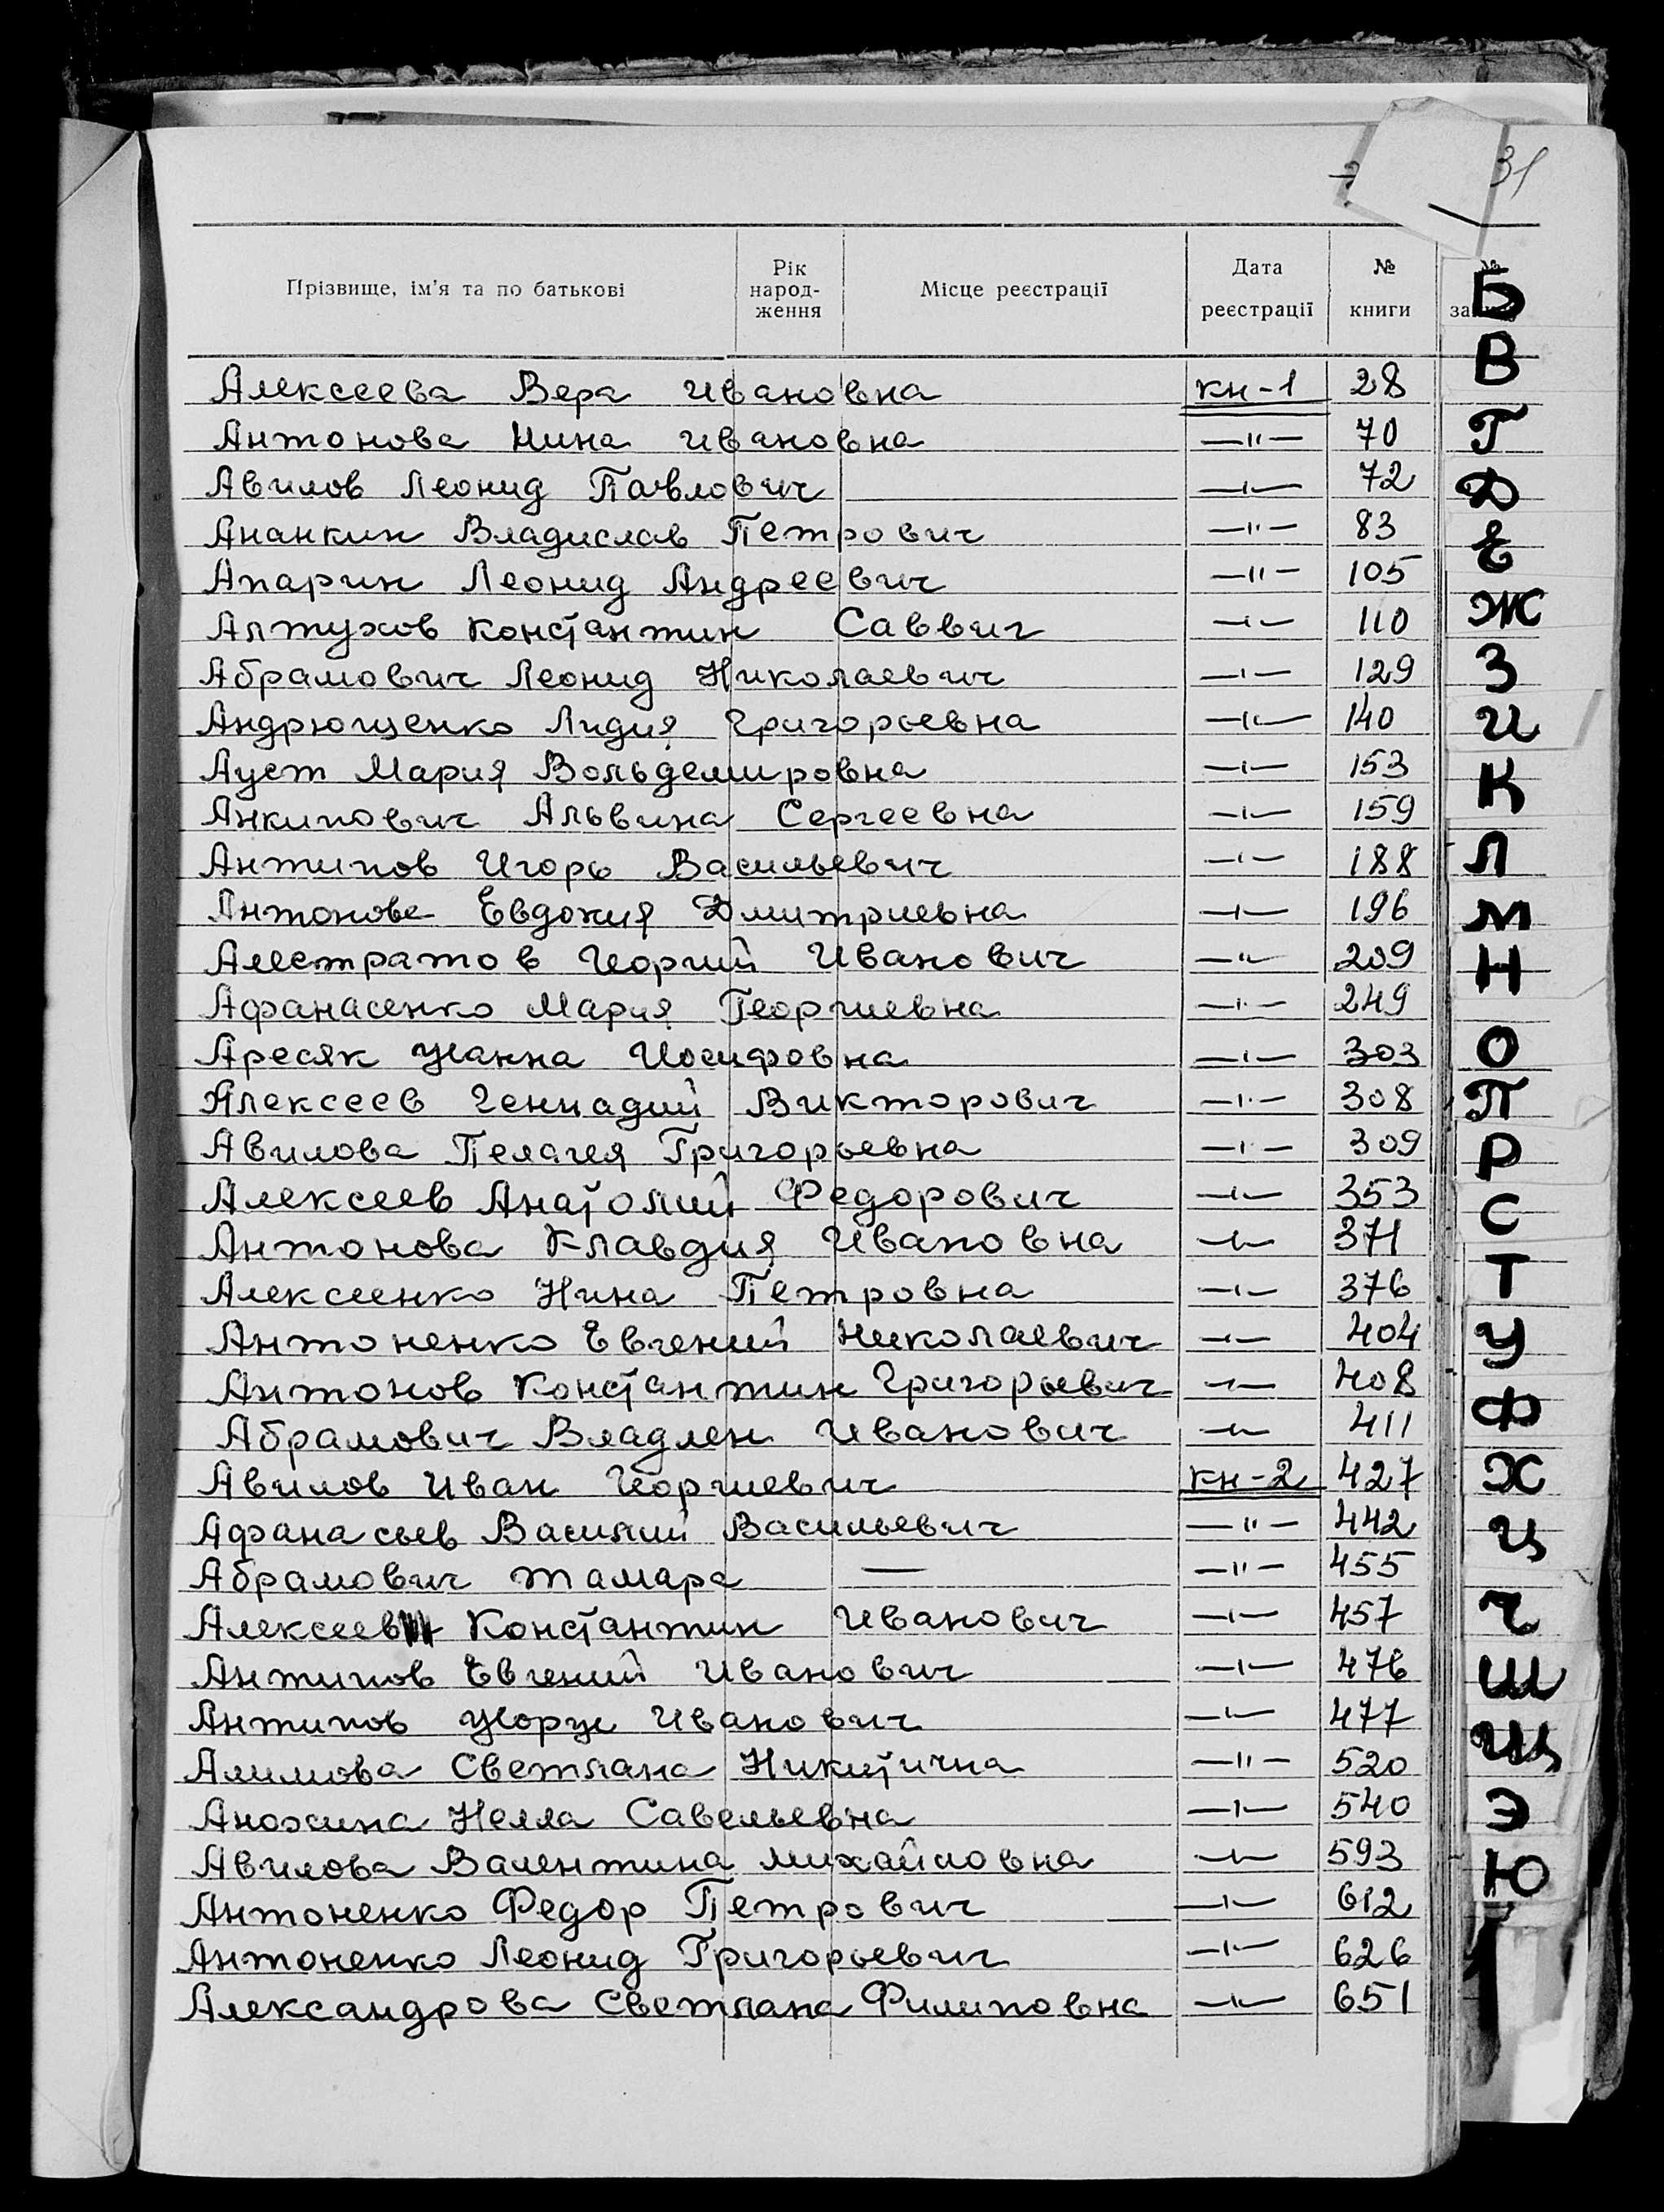 31
Прізвище, ім'я та по батькові Рік народ-ження Місце реєстрації Дата реєстрації № книги №
Алексеева Вера Ивановна кн-1 28
Антонова Нина Ивановна —"— 70
Авилов Леонид Павлович —"— 72
Ананкин Владислав Петрович —"— 83
Апарин Леонид Андреевич —"— 105
Алтухов Константин Саввич —"— 110
Абрамович Леонид Николаевич —"— 129
Андрющенко Лидия Григорьевна —"— 140
Ауст Мария Вольдемировна —"— 153
Анкипович Альвина Сергеевна —"— 159
Антипов Игорь Васильевич —"— 188
Антонова Евдокия Дмитриевна —"— 196
Алестратов Георгий Иванович —"— 209
Афанасенко Мария Георгиевна —"— 249
Аресяк Жанна Иосифовна —"— 303
Алексеев Геннадий Викторович —"— 308
Авилова Пелагея Григорьевна —"— 309
Алексеев Анатолий Федорович —"— 353
Антонова Клавдия Ивановна —"— 371
Алексеенко Нина Петровна —"— 376
Антоненко Евгений Николаевич —"— 404
Антонов Константин Григорьевич —"— 408
Абрамович Владлен Иванович —"— 411
Авилов Иван Георгиевич кн-2 427
Афанасьев Василий Васильевич —"— 442
Абрамович Тамара — —"— 455
Алексеев Константин Иванович —"— 457
Антипов Евгений Иванович —"— 476
Антипов Жорж Иванович —"— 477
Алимова Светлана Никитична —"— 520
Анохина Нелла Савельевна —"— 540
Авилова Валентина Михайловна —"— 593
Антоненко Федор Петрович —"— 612
Антоненко Леонид Григорьевич —"— 626
Александрова Светлана Филиповна —"— 651
Б
В
Г
Д
Е
Ж
З
И
К
Л
М
Н
О
П
Р
С
Т
У
Ф
Х
Ц
Ч
Ш
Щ
Э
Ю